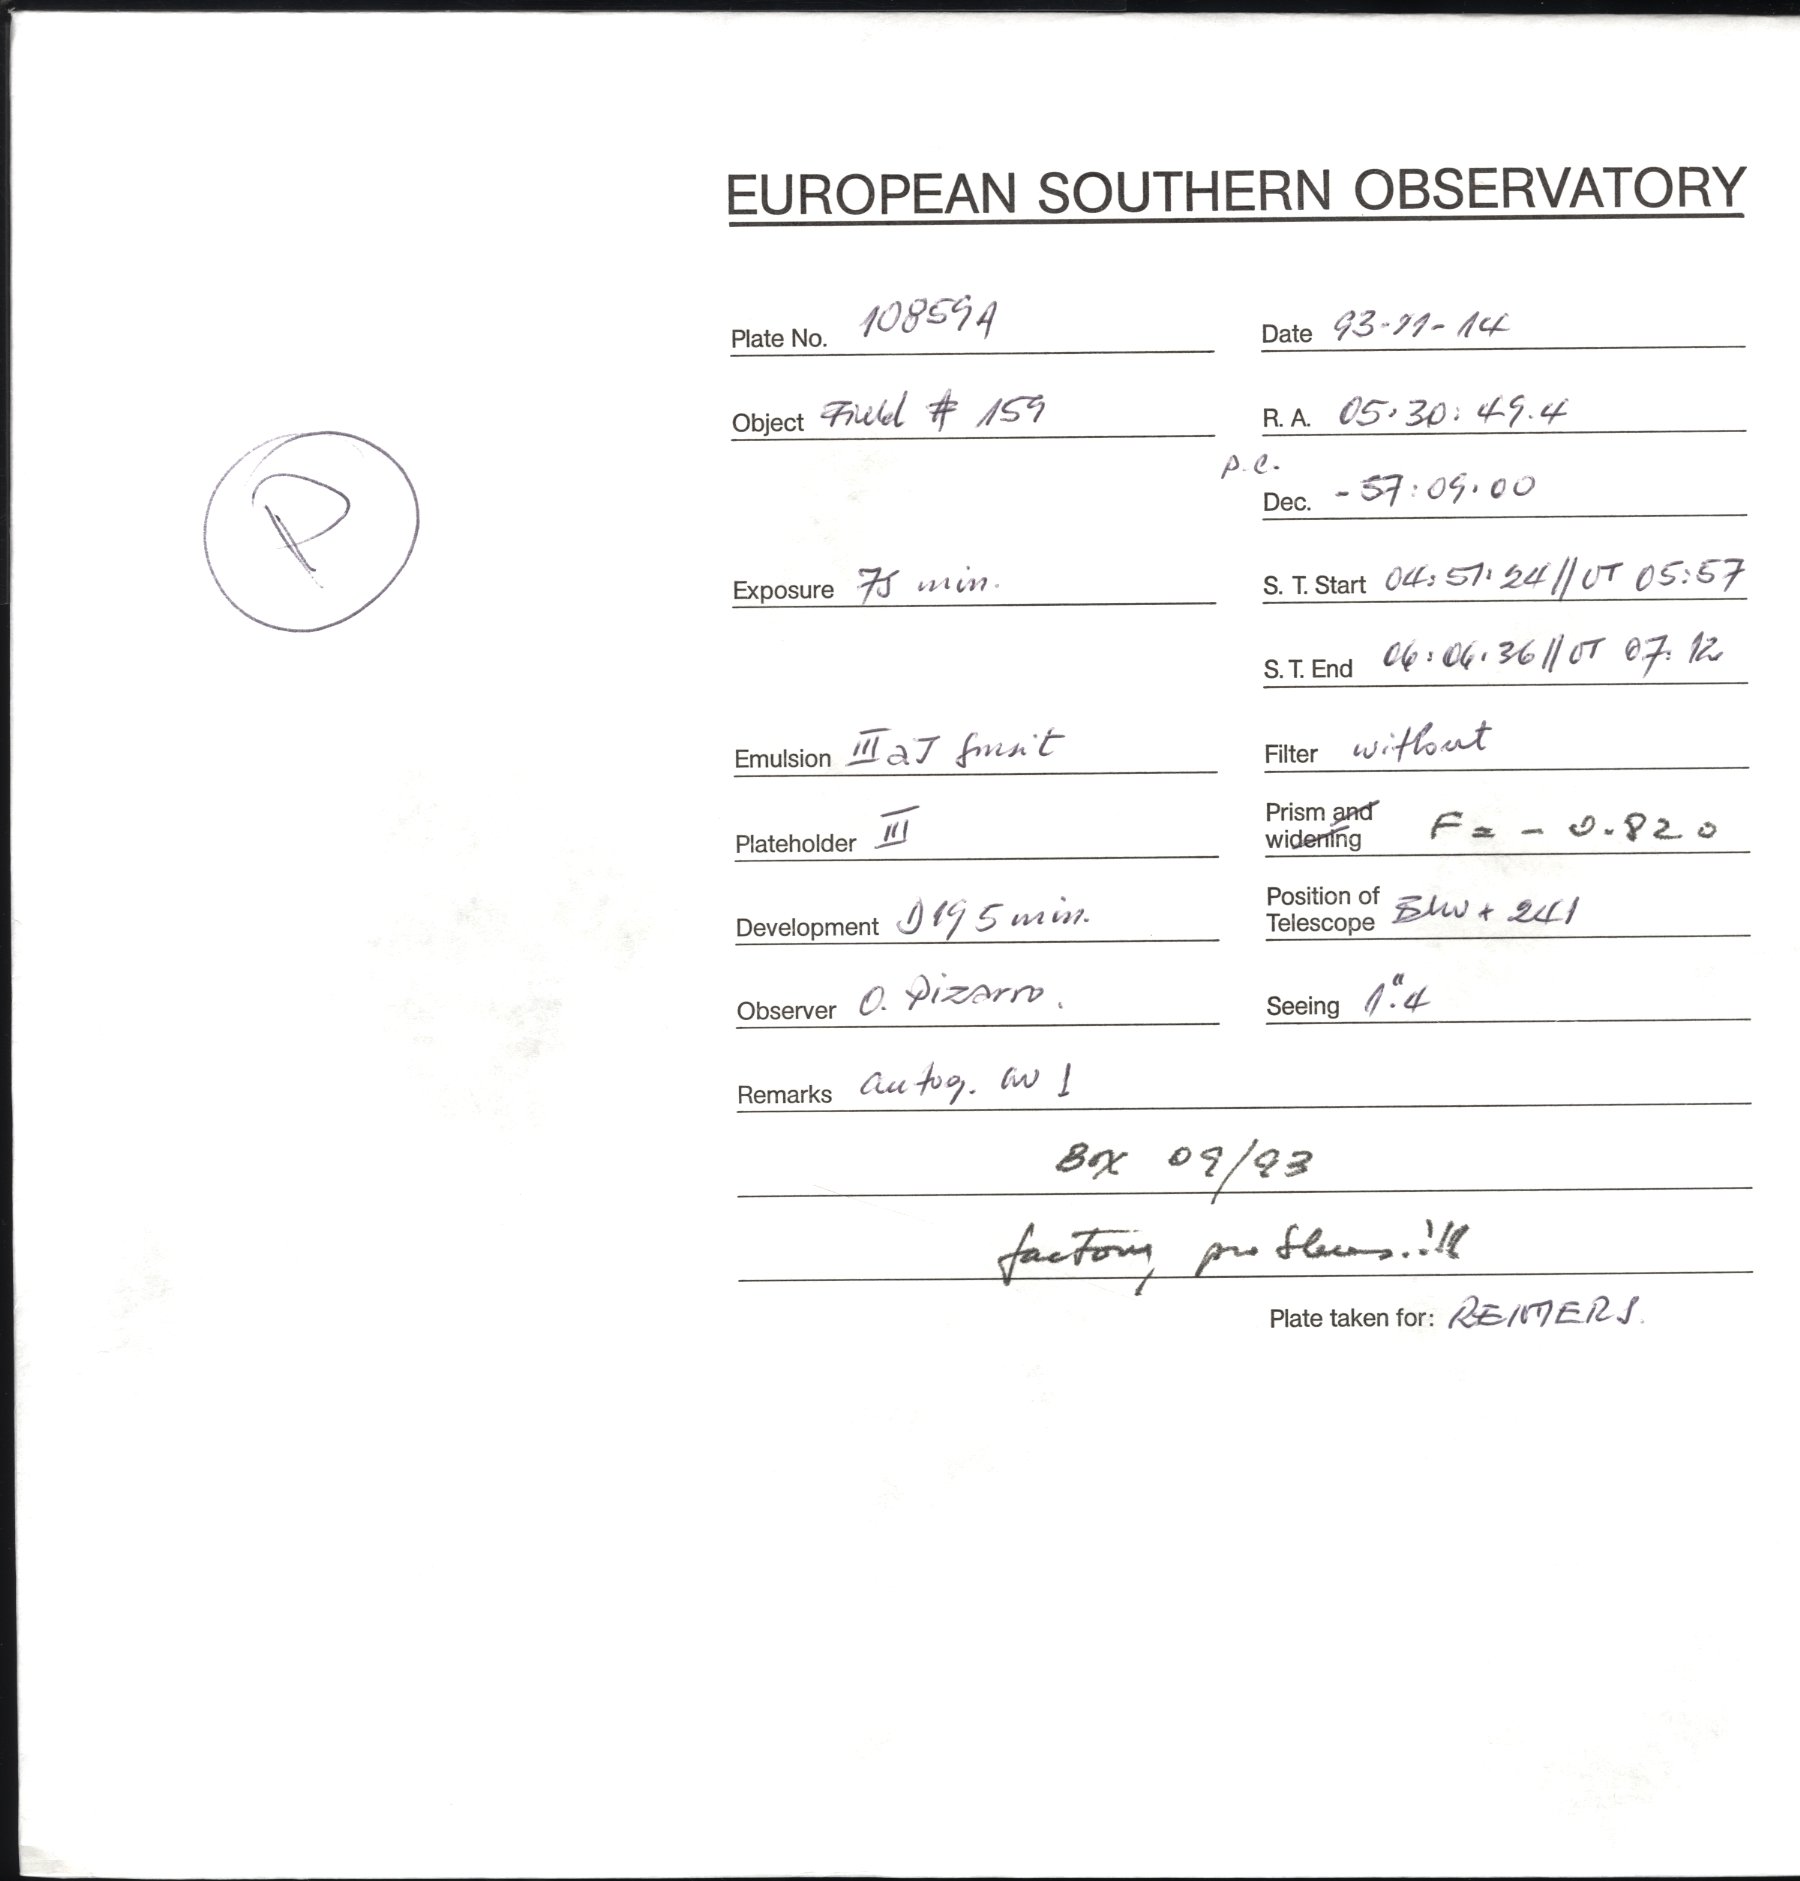 EUROPEAN SOUTHERN OBSERVATORY
Plate No. 10859A
Date 93-11-14
Object Field # 159
R. A. 05:30:49.4
P.C.
Dec. -57:09:00
P
Exposure 75 min.
S. T. Start 04:51:24 // UT 05:57
S. T. End 06:06:36 // UT 07:12
Emulsion III aJ sensit
Filter without
Plateholder III
Prism and widening F = - 0.820
Development D19 5 min.
Position of Telescope + 241
Observer O. Pizarro.
Seeing 1".4
Remarks autog.
Box 09/93
factory problems.!!!
Plate taken for: REIMERS.